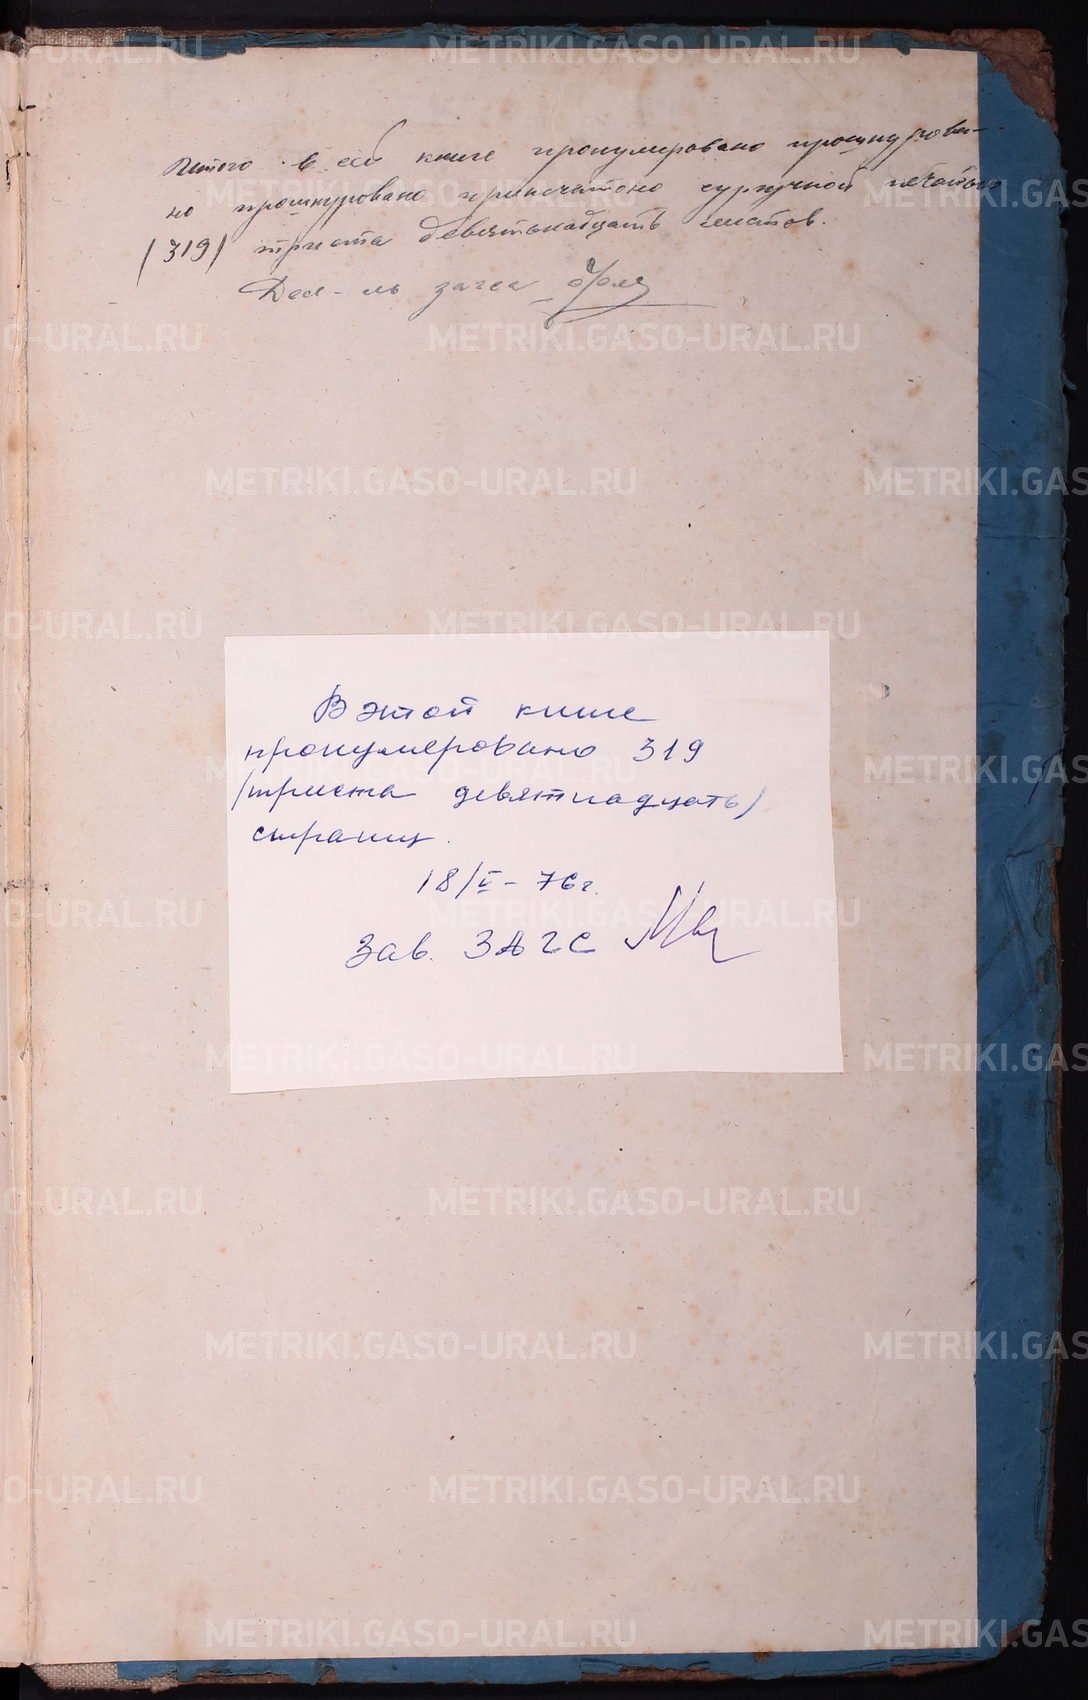 Итого в сей книге пронумеровано прошнурова-
но прошнуровано припечатано сургучной печатью
(319) триста девятнадцать листов.
Дел-ль загса
В этой книге
пронумеровано 319
/триста девятнадцать/
страниц.
18/V - 76 г.
Зав. ЗАГС
METRIKI.GASO-URAL.RU